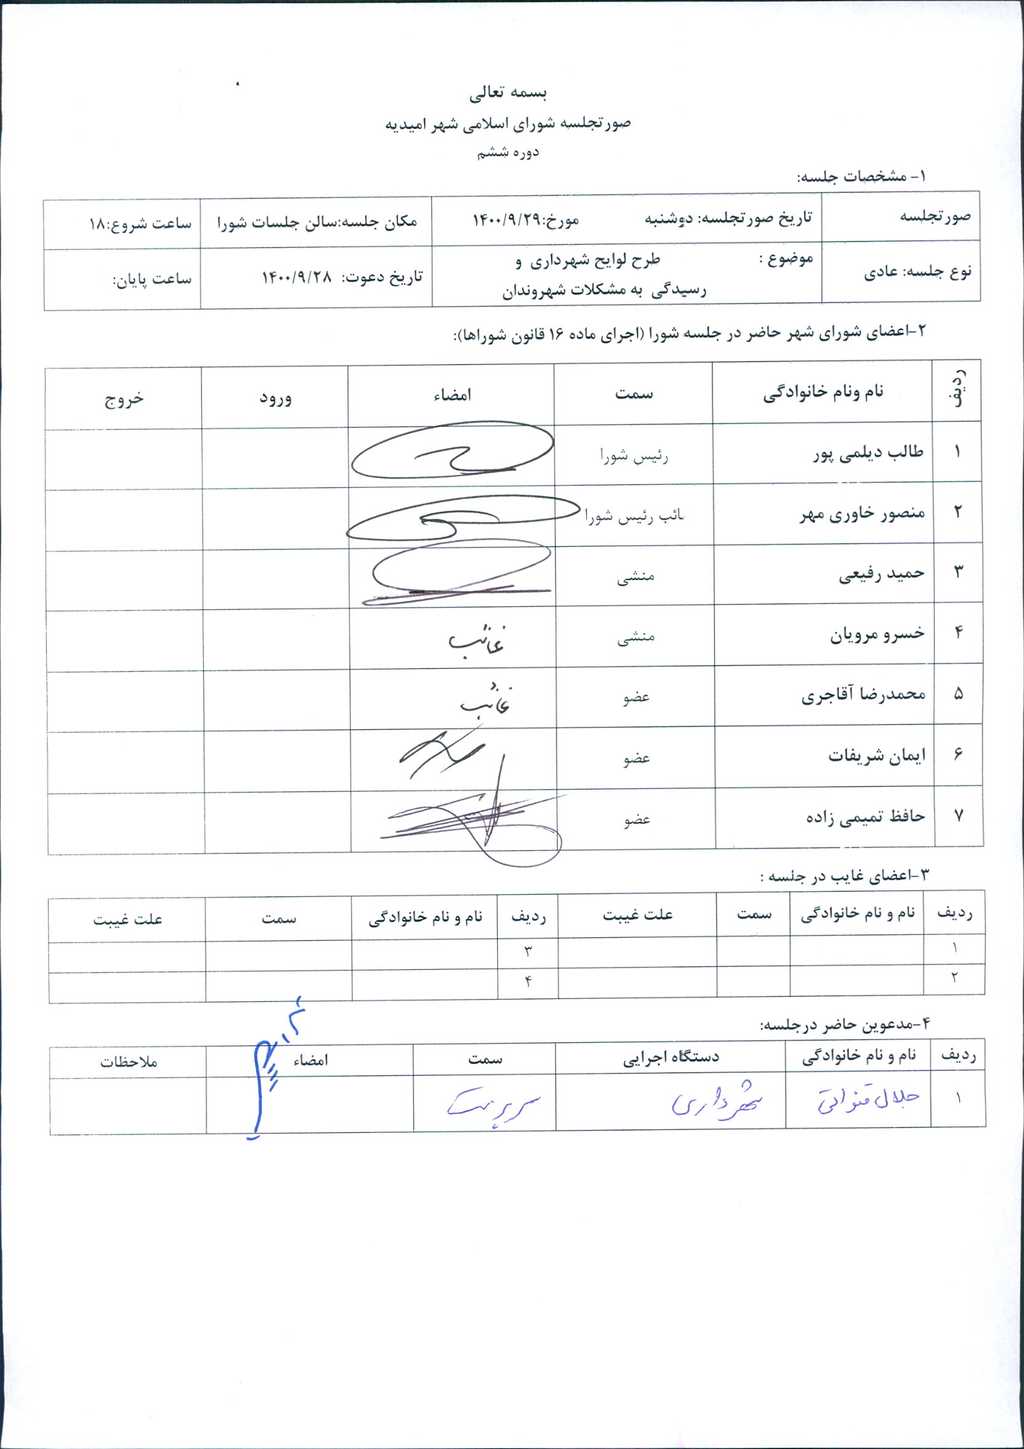 بسمه تعالی
صورتجلسه شورای اسلامی شهر امیدیه
دوره ششم
۱- مشخصات جلسه:
صورتجلسه تاریخ صورتجلسه: دوشنبه مورخ:۱۴۰۰/۹/۲۹ مکان جلسه:سالن جلسات شورا ساعت شروع:۱۸
نوع جلسه: عادی موضوع : طرح لوایح شهرداری و رسیدگی به مشکلات شهروندان تاریخ دعوت: ۱۴۰۰/۹/۲۸ ساعت پایان:
۲-اعضای شورای شهر حاضر در جلسه شورا (اجرای ماده ۱۶ قانون شوراها):
ردیف نام ونام خانوادگی سمت امضاء ورود خروج
۱ طالب دیلمی پور رئیس شورا
۲ منصور خاوری مهر ائب رئیس شورا
۳ حمید رفیعی منشی
۴ خسرو مرویان منشی غائب
۵ محمدرضا آقاجری عضو غائب
۶ ایمان شریفات عضو
۷ حافظ تمیمی زاده عضو
۳-اعضای غایب در جلسه :
ردیف نام و نام خانوادگی سمت علت غیبت ردیف نام و نام خانوادگی سمت علت غیبت
۱ ۳
۲ ۴
۴-مدعوین حاضر درجلسه:
ردیف نام و نام خانوادگی دستگاه اجرایی سمت امضاء ملاحظات
۱ جلال قنواتی شهرداری سرپرست